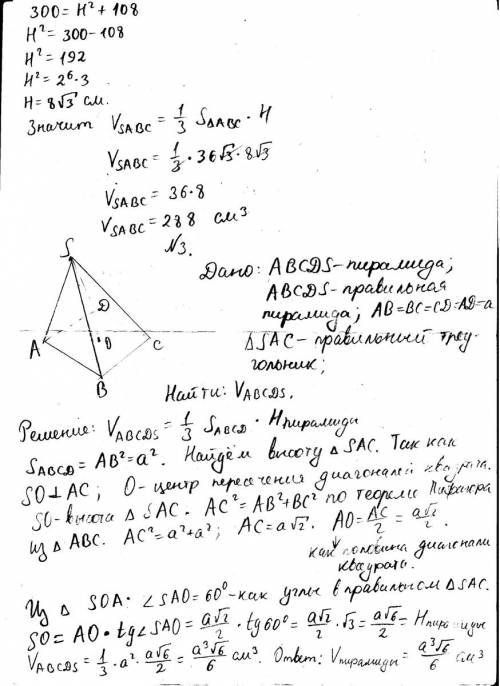 300 = H² + 108
H² = 300 - 108
H² = 192
H² = 2⁶·3
H = 8√3 см.
Значит V_SABC = 1/3 S_ΔABC · H
V_SABC = 1/3 · 36√3 · 8√3
V_SABC = 36·8
V_SABC = 288 см³
№3.
Дано: ABCDS - пирамида;
ABCDS - правильная
пирамида; AB=BC=CD=AD=a
ΔSAC - правильный треу-
гольник;
S
D
A
O
C
B
Найти: V_ABCDS.
Решение: V_ABCDS = 1/3 S_ABCD · H пирамиды
S_ABCD = AB² = a². Найдём высоту ΔSAC. Так как
SO⊥AC; O - центр пересечения диагоналей квадрата.
SO - высота ΔSAC. AC² = AB² + BC² по теореме Пифагора
из ΔABC. AC² = a² + a²; AC = a√2. AO = AC/2 = a√2/2.
как половина диагонали
квадрата.
Из ΔSOA. ∠SAO = 60° - как углы в правильном ΔSAC.
SO = AO · tg∠SAO = a√2/2 · tg60° = a√2/2 · √3 = a√6/2 = H пирамиды
V_ABCDS = 1/3 · a² · a√6/2 = a³√6/6 см³. Ответ: V пирамиды = a³√6/6 см³